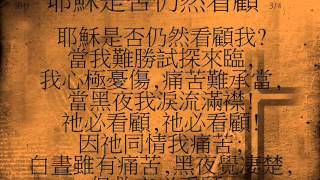 耶穌是否仍然看顧
3/4
耶穌是否仍然看顧我?
當我難勝試探來臨,
我心極憂傷,痛苦難承當,
當黑夜我淚流滿襟!
祂必看顧,祂必看顧!
因祂同情我痛苦;
白晝雖有痛苦,黑夜覺淒楚,